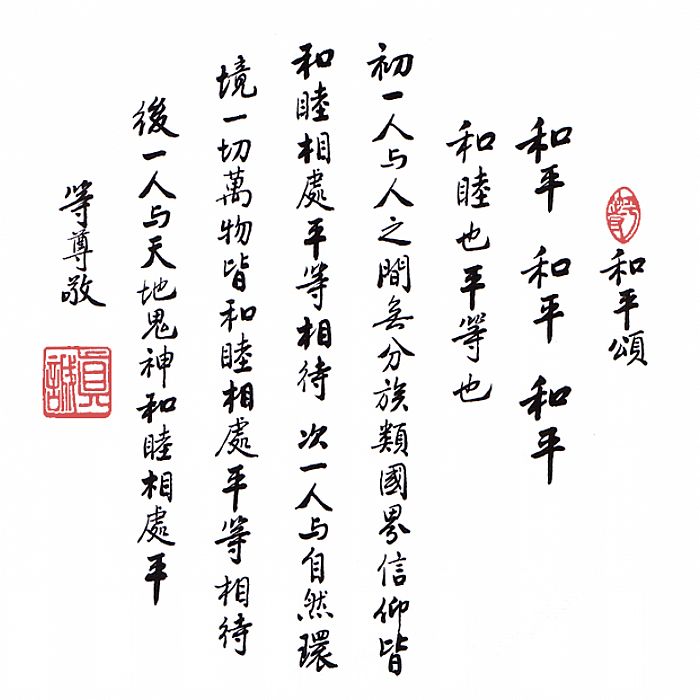 和平頌
和平 和平 和平
和睦也平等也
初一人与人之間無分族類國界信仰皆
和睦相處平等相待 次一人与自然環
境一切萬物皆和睦相處平等相待
後一人与天地鬼神和睦相處平
等尊敬
真誠